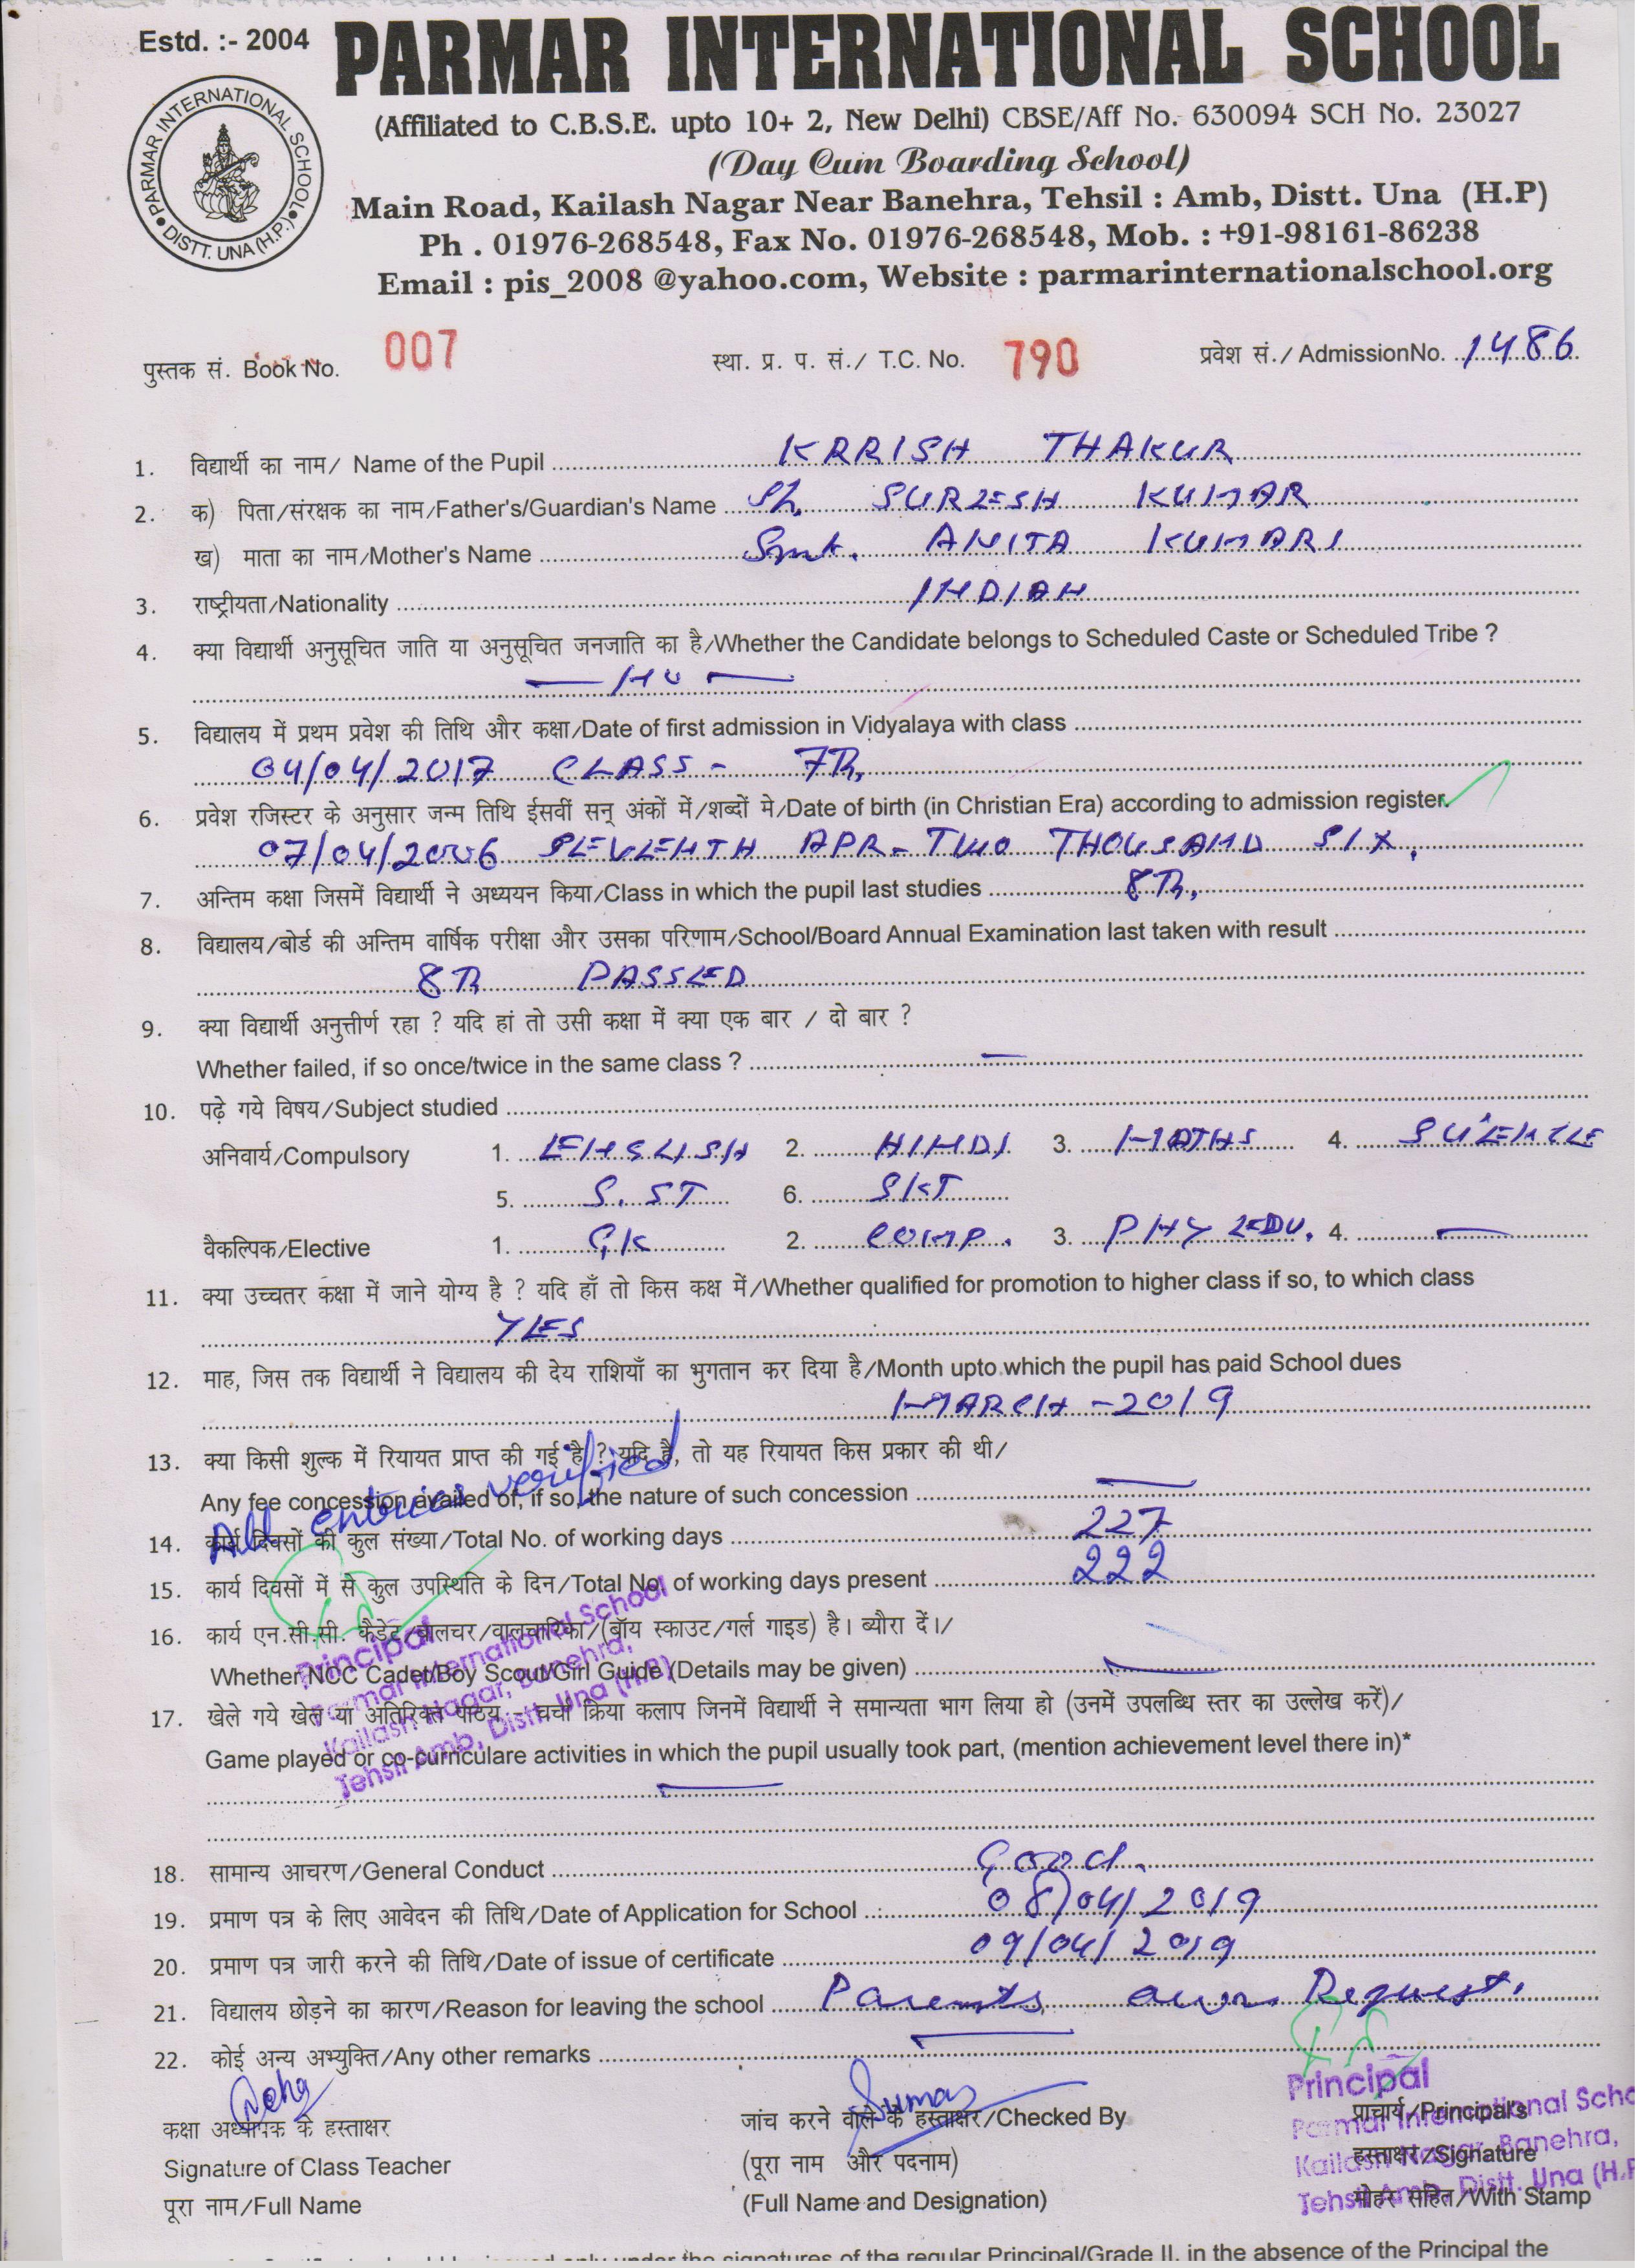 Estd. :- 2004
PARMAR INTERNATIONAL SCHOOL
(Affiliated to C.B.S.E. upto 10+ 2, New Delhi) CBSE/Aff No. 630094 SCH No. 23027
(Day Cum Boarding School)
Main Road, Kailash Nagar Near Banehra, Tehsil : Amb, Distt. Una (H.P)
Ph . 01976-268548, Fax No. 01976-268548, Mob. : +91-98161-86238
Email : pis_2008 @yahoo.com, Website : parmarinternationalschool.org
PARMAR INTERNATIONAL SCHOOL
DISTT. UNA (H.P.)
पुस्तक सं. Book No. 007 स्था. प्र. प. सं./ T.C. No. 790 प्रवेश सं./ AdmissionNo. 1486
1. विद्यार्थी का नाम/ Name of the Pupil KRRISH THAKUR
2. क) पिता/संरक्षक का नाम/Father's/Guardian's Name Sh. SURESH KUMAR
ख) माता का नाम/Mother's Name Smt. ANITA KUMARI
3. राष्ट्रीयता/Nationality INDIAN
4. क्या विद्यार्थी अनुसूचित जाति या अनुसूचित जनजाति का है/Whether the Candidate belongs to Scheduled Caste or Scheduled Tribe ?
— NO —
5. विद्यालय में प्रथम प्रवेश की तिथि और कक्षा/Date of first admission in Vidyalaya with class
04/04/2017 CLASS - 7th
6. प्रवेश रजिस्टर के अनुसार जन्म तिथि ईसवीं सन् अंकों में/शब्दों मे/Date of birth (in Christian Era) according to admission register.
07/04/2006 SEVENTH APR- TWO THOUSAND SIX.
7. अन्तिम कक्षा जिसमें विद्यार्थी ने अध्ययन किया/Class in which the pupil last studies 8th
8. विद्यालय/बोर्ड की अन्तिम वार्षिक परीक्षा और उसका परिणाम/School/Board Annual Examination last taken with result
8th PASSED
9. क्या विद्यार्थी अनुत्तीर्ण रहा ? यदि हां तो उसी कक्षा में क्या एक बार / दो बार ?
Whether failed, if so once/twice in the same class ? —
10. पढ़े गये विषय/Subject studied
अनिवार्य/Compulsory 1. ENGLISH 2. HINDI 3. MATHS 4. SCIENCE
5. S. ST 6. SKT
वैकल्पिक/Elective 1. GK 2. COMP. 3. PHY EDU. 4. —
11. क्या उच्चतर कक्षा में जाने योग्य है ? यदि हाँ तो किस कक्ष में/Whether qualified for promotion to higher class if so, to which class
YES
12. माह, जिस तक विद्यार्थी ने विद्यालय की देय राशियाँ का भुगतान कर दिया है/Month upto which the pupil has paid School dues
MARCH - 2019
13. क्या किसी शुल्क में रियायत प्राप्त की गई है ? यदि है, तो यह रियायत किस प्रकार की थी/
Any fee concession availed of, if so, the nature of such concession —
All entries verified
14. कार्य दिवसों की कुल संख्या/Total No. of working days 227
15. कार्य दिवसों में से कुल उपस्थिति के दिन/Total No. of working days present 222
16. कार्य एन.सी.सी. कैडेट/बालचर/वालचारिका/(बॉय स्काउट/गर्ल गाइड) है। ब्यौरा दें।/
Whether NCC Cadet/Boy Scout/Girl Guide (Details may be given) —
Principal
Parmar International School
Kailash Nagar, Banehra,
Tehsil Amb, Distt. Una (H.P)
17. खेले गये खेल या अतिरिक्त पाठ्य - चर्चा क्रिया कलाप जिनमें विद्यार्थी ने समान्यता भाग लिया हो (उनमें उपलब्धि स्तर का उल्लेख करें)/
Game played or co-curriculare activities in which the pupil usually took part, (mention achievement level there in)*
—
18. सामान्य आचरण/General Conduct Good.
19. प्रमाण पत्र के लिए आवेदन की तिथि/Date of Application for School 08/04/2019
20. प्रमाण पत्र जारी करने की तिथि/Date of issue of certificate 09/04/2019
21. विद्यालय छोड़ने का कारण/Reason for leaving the school Parents own Request.
22. कोई अन्य अभ्युक्ति/Any other remarks —
Neha Suman
Principal
Parmar International Scho
Kailash Nagar, Banehra,
Tehsil Amb, Distt. Una (H.P
कक्षा अध्यापक के हस्ताक्षर जांच करने वाले के हस्ताक्षर/Checked By प्राचार्य/Principal's
Signature of Class Teacher (पूरा नाम और पदनाम) हस्ताक्षर/Signature
पूरा नाम/Full Name (Full Name and Designation) मोहर सहित/With Stamp
only under the signatures of the regular Principal/Grade II, in the absence of the Principal the